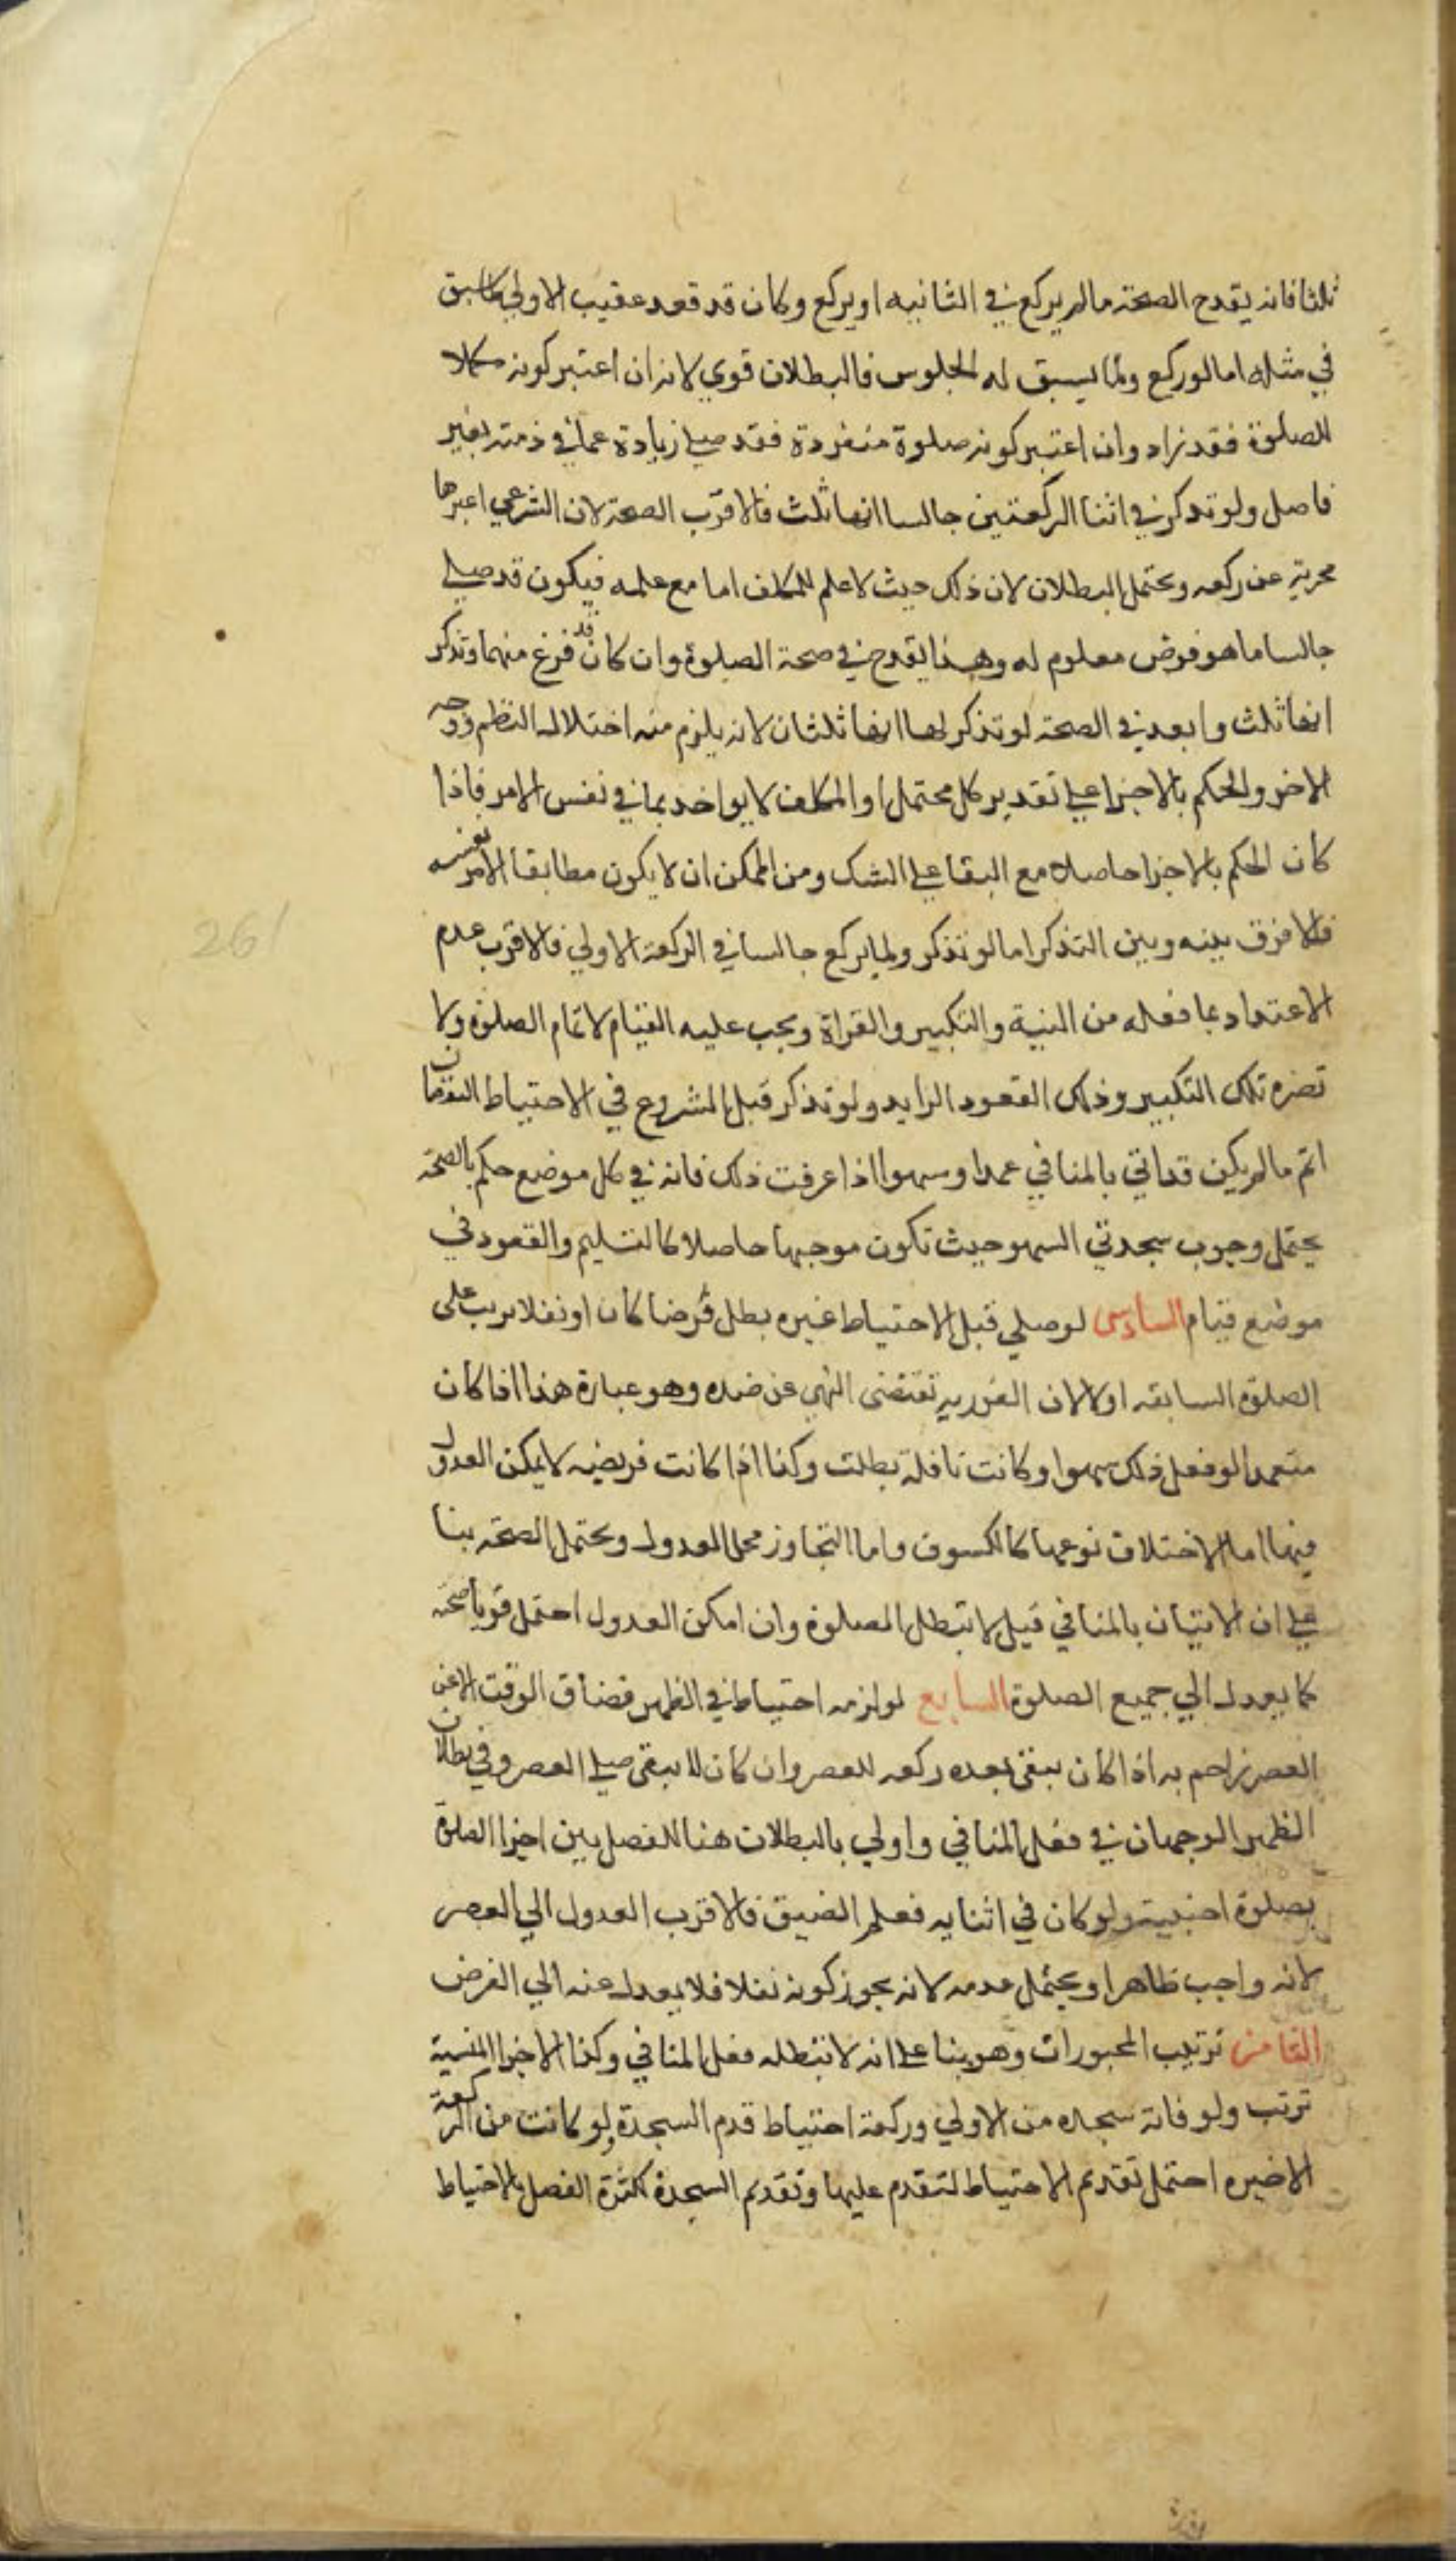 ثلثا فانه يقدح الصحة ما لم يركع في الثانيه او يركع وكان قد قعد عقيب الاولي كما سبق
في مثله اما لو ركع ولما يسبق له الجلوس فالبطلان قوي لانه ان اعتبر كونه مكملا
للصلوة فقد زاد وان اعتبر كونه صلوة منفردة فقد صلي زيادة عما في ذمته بغير
فاصل ولو تذكر في اثنا الركعتين جالسا انها ثلث فالاقرب الصحة لان الشرعي اعتبرها
مجزية عن ركعه ويحتمل البطلان لان ذلك حيث لا علم للمكلف اما مع علمه فيكون قد صلي
جالسا ما هو فرض معلوم له وهذا يقدح في صحة الصلوة وان كان قد فرغ منهما وتذكر
انها ثلث وابعد في الصحة لو تذكر لها انها ثلثان لانه يلزم منه اختلال النظم ووجه
الاخر والحكم بالاجزا علي تقدير كل محتمل او المكلف لا يواخذ بما في نفس الامر فاذا
كان الحكم بالاجزا حاصلا مع البقا علي الشك ومن الممكن ان لا يكون مطابقا لامر نفسه
فلا فرق بينه وبين التذكر اما لو تذكر ولما يركع جالسا في الركعة الاولي فالاقرب عدم
الاعتداد بما فعله من النية والتكبير والقراة ويجب عليه القيام لاتمام الصلوة ولا
تضره تلك التكبير وذلك القعود الزايد ولو تذكر قبل الشروع في الاحتياط النقصان
اتم ما لم يكن قد اتي بالمنافي عمدا وسهوا اذا عرفت ذلك فانه في كل موضع حكم بالصحة
يحتمل وجوب سجدتي السهو حيث تكون موجبها حاصلا كالتسليم والقعود في
موضع قيام السادس لو صلي قبل الاحتياط غيره بطل فرضا كان او نفلا ترتب علي
الصلوة السابقه او لا لان الفوريه تقتضى النهي عن ضده وهو عبارة هذا اذا كان
متعمدا لو فعل ذلك سهوا وكانت نافلة بطلت وكذا اذا كانت فريضه لا يمكن العدول
فيها اما لاختلاف نوعهما كالكسوف واما لتجاوز محل العدول ويحتمل الصحة بنا
علي ان الاتيان بالمنافي قبل لا تبطل الصلوة وان امكن العدول احتمل قويا صحته
كما يعدل الي جميع الصلوة السابع لو لزمه احتياط في الظهر فضاق الوقت الا عن
العصر زاحم به اذا كان يبقى بعده ركعه للعصر وان كان لا يبقى صلي العصر وفي بطلان
الظهر الوجهان في فعل المنافي واولي بالبطلان هنا للفصل بين اجزا الصلوة
بصلوة اجنبية ولو كان في اثنايه فعلم الضيق فالاقرب العدول الي العصر
لانه واجب ظاهرا ويحتمل عدمه لانه يجوز كونه نفلا فلا يعدل عنه الي الفرض
الثامن ترتيب المجبورات وهو بنا علي انه لا تبطله فعل المنافي وكذا الاجزا المنسية
ترتب ولو فاته سجده من الاولي وركعة احتياط قدم السجدة ولو كانت من الركعة
الاخيره احتمل تقديم الاحتياط لتقدم عليها وتقديم السجدة لكثرة الفصل بالاحتياط
261